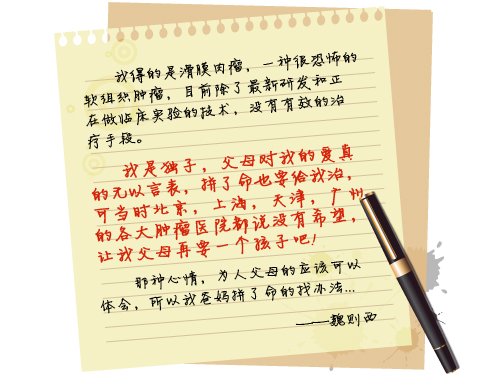 我得的是滑膜肉瘤，一种很恐怖的
软组织肿瘤，目前除了最新研发和正
在做临床实验的技术，没有有效的治
疗手段。
我是独子，父母对我的爱真
的无以言表，拼了命也要给我治，
可当时北京，上海，天津，广州
的各大肿瘤医院都说没有希望，
让我父母再要一个孩子吧！
那种心情，为人父母的应该可以
体会，所以我爸妈拼了命的找办法...
——魏则西